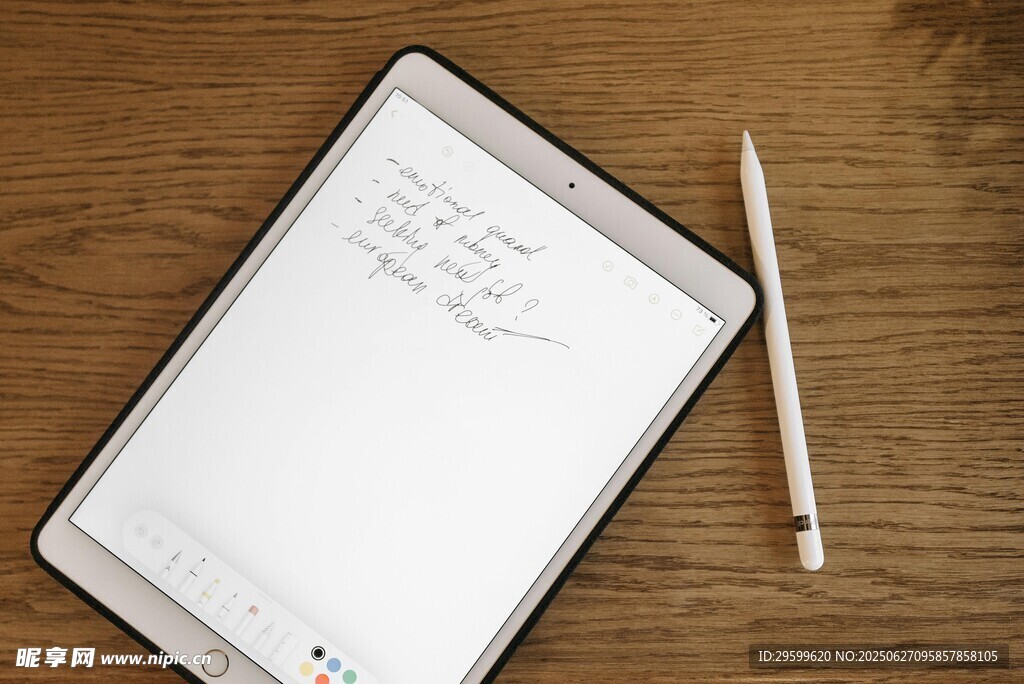 - emotional quarrel
- need of money
- seeking new job ?
- european dream
73 %
昵享网 www.nipic.cn
ID:29599620 NO:20250627095857858105